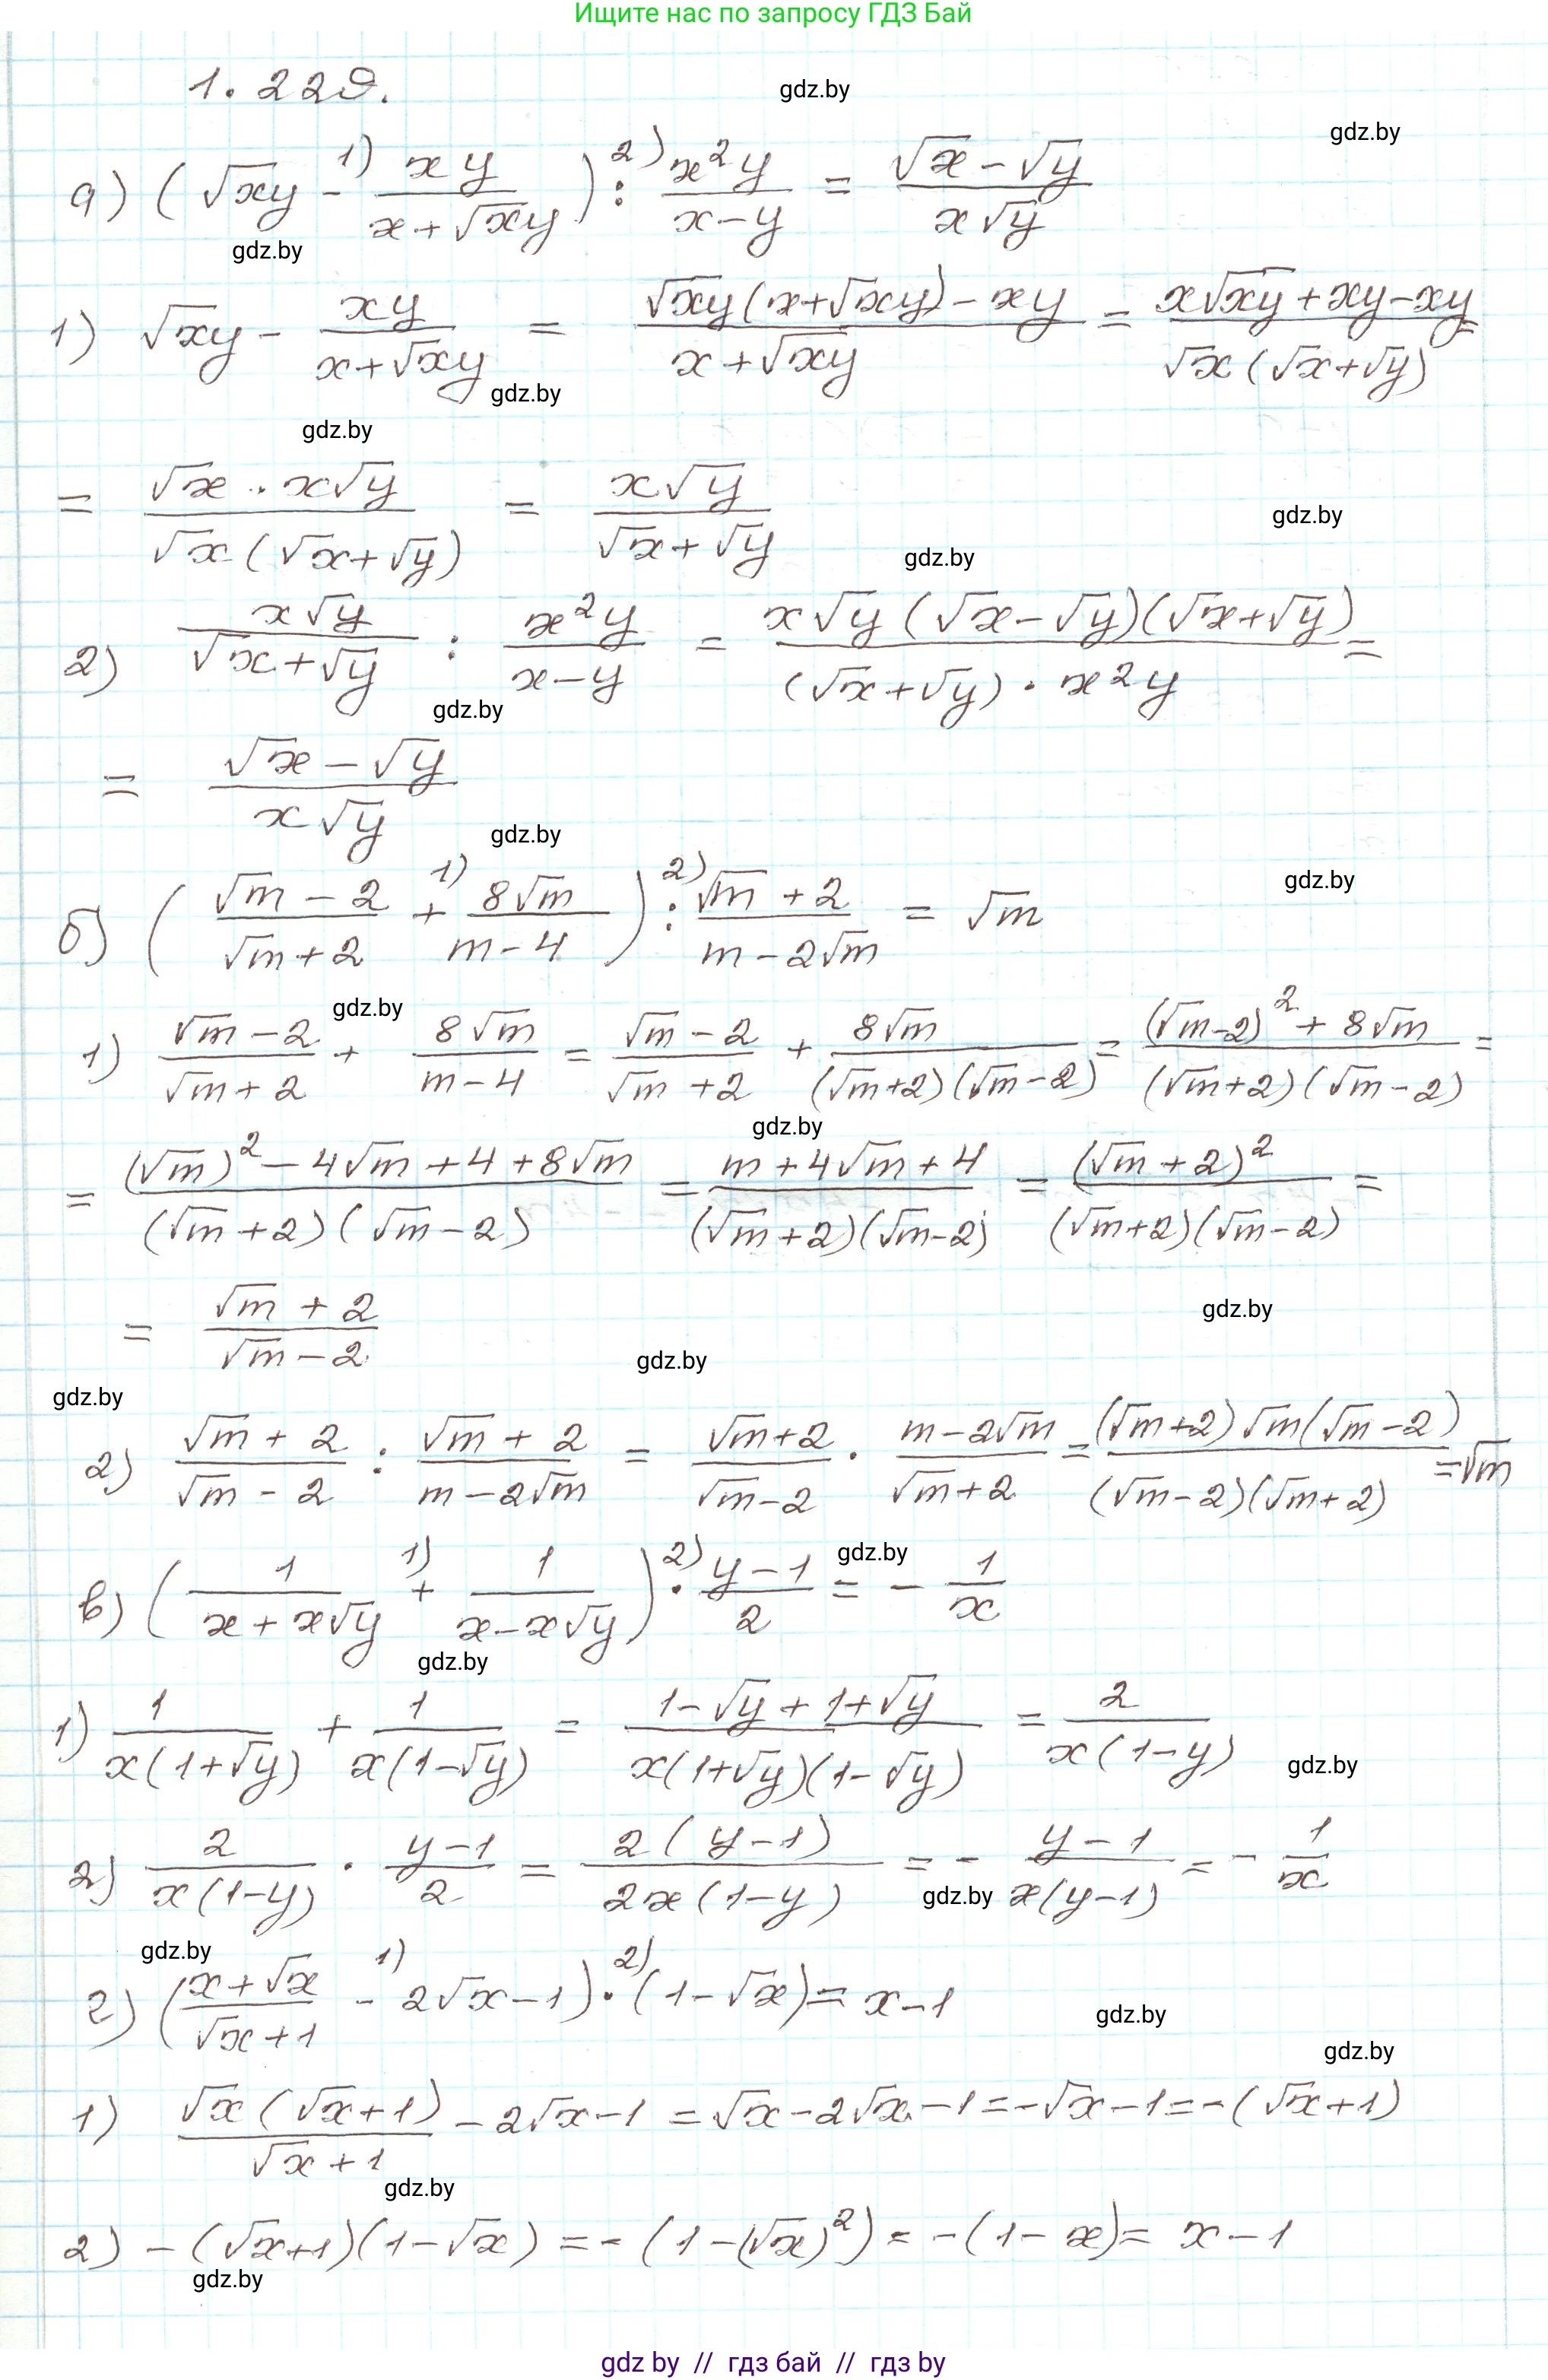 Ищите нас по запросу ГДЗ Бай
1.229.
gdz.by
gdz.by
а) (√xy - 1) xy/(x+√xy)) : 2) x²y/(x-y) = (√x-√y)/(x√y)
gdz.by
1) √xy - xy/(x+√xy) = (√xy(x+√xy)-xy)/(x+√xy) = (x√xy+xy-xy)/(√x(√x+√y)) =
gdz.by
gdz.by
= (√x · x√y)/(√x(√x+√y)) = x√y/(√x+√y)
gdz.by
gdz.by
2) x√y/(√x+√y) : x²y/(x-y) = (x√y(√x-√y)(√x+√y))/((√x+√y)·x²y) =
gdz.by
= (√x-√y)/(x√y)
gdz.by
gdz.by
б) ((√m-2)/(√m+2) + 1) 8√m/(m-4)) : 2) (√m+2)/(m-2√m) = √m
gdz.by
1) (√m-2)/(√m+2) + 8√m/(m-4) = (√m-2)/(√m+2) + 8√m/((√m+2)(√m-2)) = ((√m-2)²+8√m)/((√m+2)(√m-2)) =
gdz.by
= ((√m)²-4√m+4+8√m)/((√m+2)(√m-2)) = (m+4√m+4)/((√m+2)(√m-2)) = (√m+2)²/((√m+2)(√m-2)) =
gdz.by
= (√m+2)/(√m-2)
gdz.by
gdz.by
2) (√m+2)/(√m-2) : (√m+2)/(m-2√m) = (√m+2)/(√m-2) · (m-2√m)/(√m+2) = ((√m+2)√m(√m-2))/((√m-2)(√m+2)) = √m
gdz.by
в) (1/(x+x√y) + 1) 1/(x-x√y)) · 2) (y-1)/2 = - 1/x
gdz.by
1) 1/(x(1+√y)) + 1/(x(1-√y)) = (1-√y+1+√y)/(x(1+√y)(1-√y)) = 2/(x(1-y))
gdz.by
2) 2/(x(1-y)) · (y-1)/2 = 2(y-1)/(2x(1-y)) = - (y-1)/(x(y-1)) = - 1/x
gdz.by
gdz.by
г) ((x+√x)/(√x+1) - 1) 2√x-1) · 2) (1-√x) = x-1
gdz.by
gdz.by
1) √x(√x+1)/(√x+1) - 2√x-1 = √x-2√x-1 = -√x-1 = -(√x+1)
gdz.by
2) -(√x+1)(1-√x) = -(1-(√x)²) = -(1-x) = x-1
gdz.by
gdz by // гдз бай // гдз by